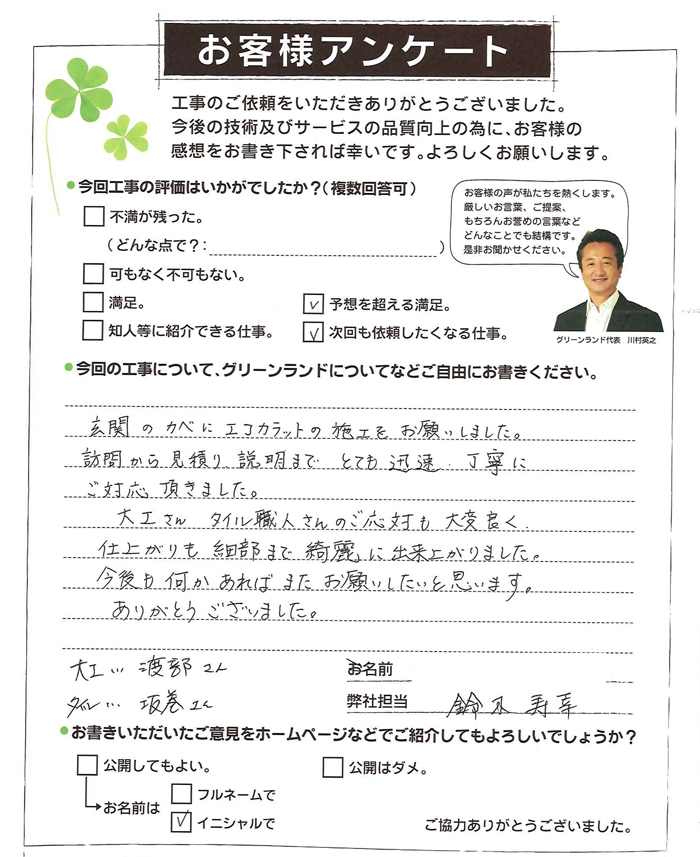 お客様アンケート
工事のご依頼をいただきありがとうございました。
今後の技術及びサービスの品質向上の為に、お客様の
感想をお書き下されば幸いです。よろしくお願いします。
今回工事の評価はいかがでしたか?(複数回答可)
不満が残った。
(どんな点で?: )
可もなく不可もない。
満足。
予想を超える満足。
知人等に紹介できる仕事。
次回も依頼したくなる仕事。
お客様の声が私たちを熱くします。
厳しいお言葉、ご提案、
もちろんお誉めの言葉など
どんなことでも結構です。
是非お聞かせください。
グリーンランド代表 川村英之
今回の工事について、グリーンランドについてなどご自由にお書きください。
玄関のカベにエコカラットの施工をお願いしました。
訪問から見積り説明まで とても迅速、丁寧に
ご対応頂きました。
大工さん タイル職人さんのご応対も大変良く
仕上がりも細部まで綺麗に出来上がりました。
今後も何かあればまたお願いしたいと思います。
ありがとうございました。
大工… 渡部さん
お名前
タイル… 坂巻さん
弊社担当 鈴木寿幸
お書きいただいたご意見をホームページなどでご紹介してもよろしいでしょうか?
公開してもよい。
公開はダメ。
お名前は
フルネームで
イニシャルで
ご協力ありがとうございました。